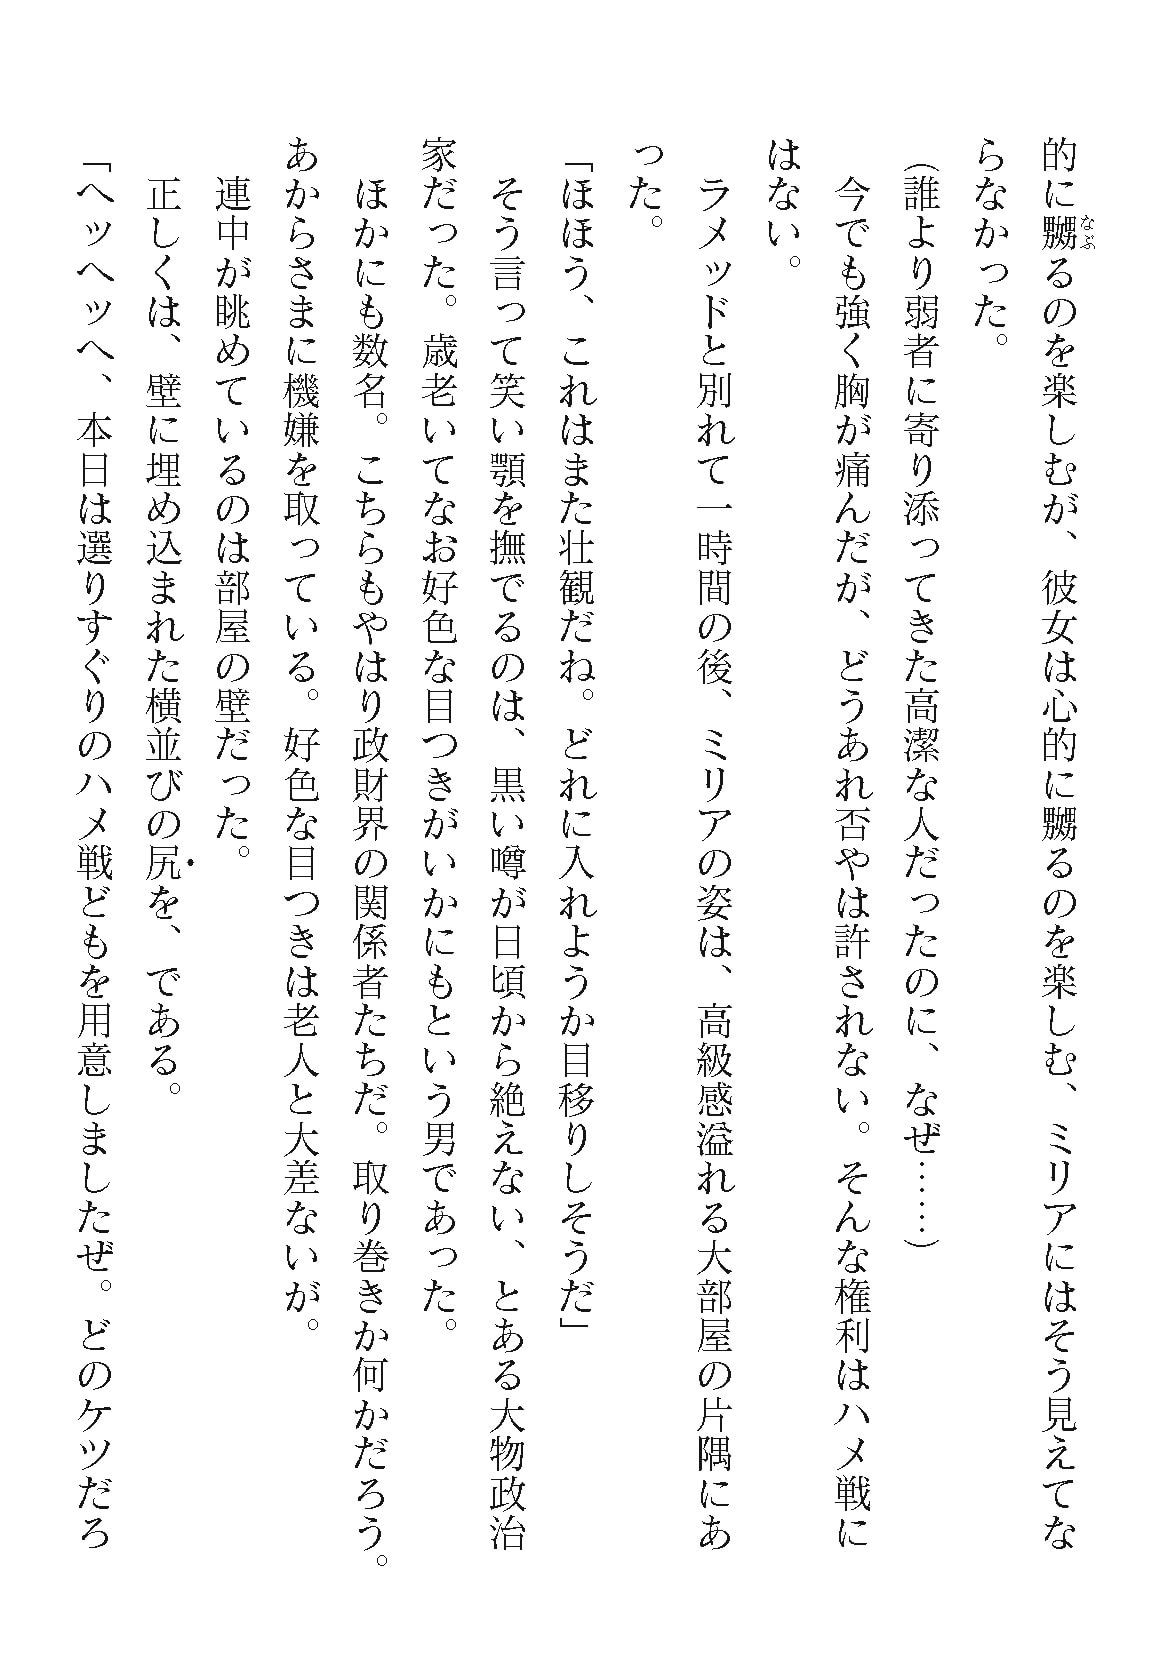 的に嬲るのを楽しむが、彼女は心的に嬲るのを楽しむ、ミリアにはそう見えてな
なぶ
らなかった。
（誰より弱者に寄り添ってきた高潔な人だったのに、なぜ……）
今でも強く胸が痛んだが、どうあれ否やは許されない。そんな権利はハメ戦に
はない。
ラメッドと別れて一時間の後、ミリアの姿は、高級感溢れる大部屋の片隅にあ
った。
「ほほう、これはまた壮観だね。どれに入れようか目移りしそうだ」
そう言って笑い顎を撫でるのは、黒い噂が日頃から絶えない、とある大物政治
家だった。歳老いてなお好色な目つきがいかにもという男であった。
ほかにも数名。こちらもやはり政財界の関係者たちだ。取り巻きか何かだろう。
あからさまに機嫌を取っている。好色な目つきは老人と大差ないが。
連中が眺めているのは部屋の壁だった。
正しくは、壁に埋め込まれた横並びの尻を、である。
「ヘッヘッヘ、本日は選りすぐりのハメ戦どもを用意しましたぜ。どのケツだろ